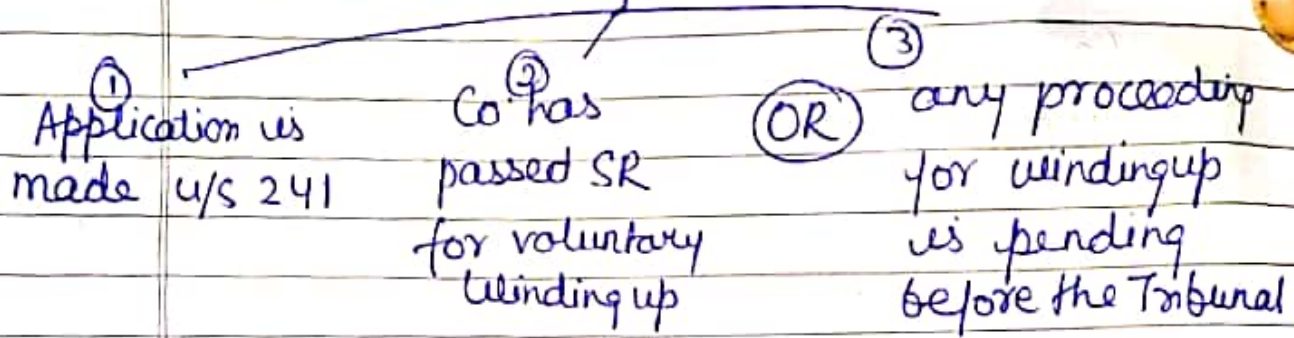 ①
Application is
made u/s 241
②
Co. has
passed SR
for voluntary
Winding up
OR
③
any proceeding
for winding up
is pending
before the Tribunal